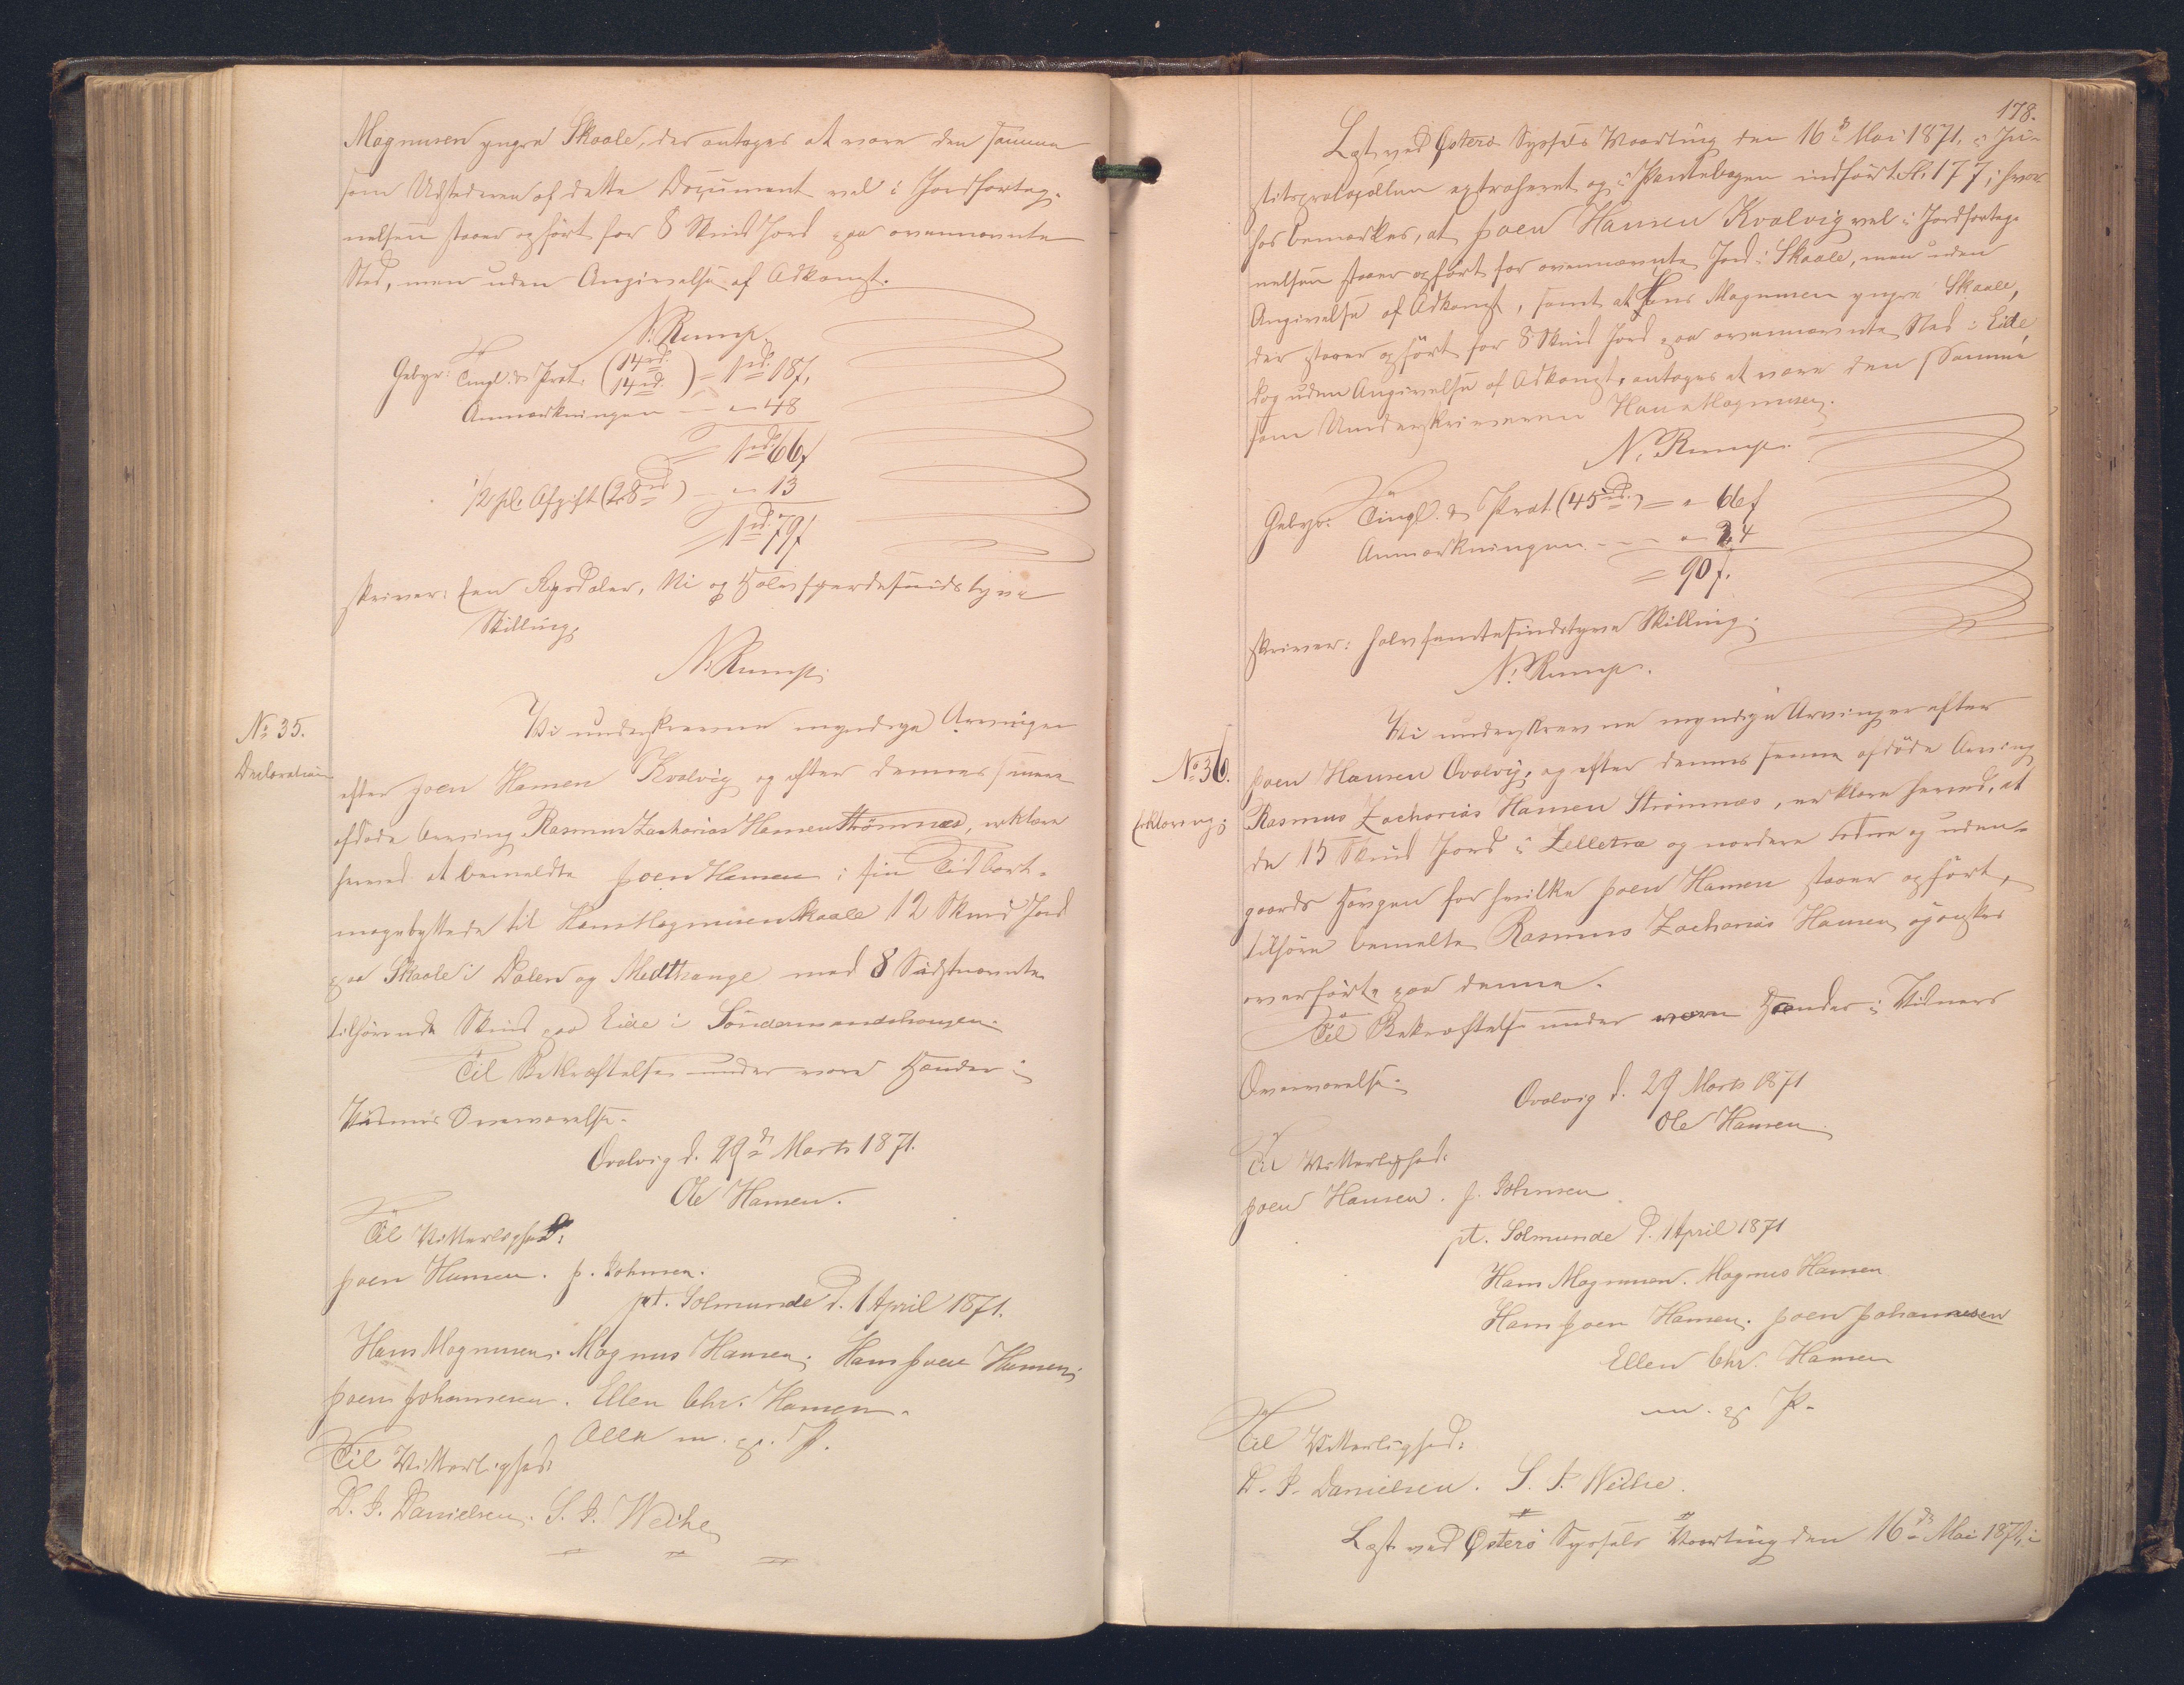 Magnusen yngre Skaale, der antages at være den samme
som Udstederen af dette Document vel i Jordforteg-
nelsen staaer opført for 8 Skind Jord paa ovennævnte
Sted, men uden Angivelse af Adkomst.
N. Rump.
Gebyr: Tingl. & Prot. (14 rd. 14 rd.) = 1 rd. 18 f,
Anmærkningen — " - 48
= 1 rd. 66 f
1/2 pCt. Afgift (28 rd) — " - 13
1 rd. 79 f
skriver: Een Rigsdaler, Ni og Halvfjerdesindstyve
Skilling.
N. Rump.
No 35.
Declaration
Vi underskrevne myndige Arvinger
efter Joen Hansen Kvalvig og efter dennes senere
afdøde Arving Rasmus Zacharias Hansen Strømnæs, erklære
herved at bemeldte Joen Hansen i sin Tid bort-
magebyttede til Hans Magnusen Skaale 12 Skind Jord
paa Skaale i Dalen og Medthange mod 8 Sidstnævnte
tilhørende Skind paa Eide i Søndermandshougen.
Til Bekræftelse under vore Hænder i
Vidners Overværelse.
Qvalvig d. 29 ds Marts 1871.
Ole Hansen.
Til Vitterlighed:
Joen Hansen. J. Johnsen.
pt. Solmunde d. 1 April 1871.
Hans Magnusen. Magnus Hansen. Hans Joen Hansen.
Joen Johannesen. Ellen Chr. Hansen.
Alle m. p. P.
Til Vitterlighed:
D. J. Danielsen. S. J. Weihe
178.
Læst ved Østerø Syssels Vaarting den 16 ds Mai 1871, i Ju-
stitsprotocollen extraheret og i Pantebogen indført fl. 177; hvor-
hos bemærkes, at Joen Hansen Kvalvig vel i Jordforteg-
nelsen staaer opført for ovennævnte Jord i Skaale, men uden
Angivelse af Adkomst, samt at Hans Magnusen yngre Skaale,
der staaer opført for 8 Skind Jord paa ovennævnte Sted i Eide
dog uden Angivelse af Adkomst, antages at være den Samme
som Underskriveren Hans Magnusen.
N. Rump.
Gebyr: Tingl. & Prot. (45 rd.) = " 66 f
Anmærkningen - — " - 24
= 90 f.
skriver: halvfemtesindstyve Skilling.
N. Rump.
No 36.
Erklæring.
Vi underskrevne myndige Arvinger efter
Joen Hansen Qvalvig, og efter dennes senere afdøde Arving
Rasmus Zacharias Hansen Strømnæs, erklære herved, at
de 15 Skind Jord i Lelletræ og nordere og uden-
gaards Hougen for hvilke Joen Hansen staaer opført,
tilhøre bemelte Rasmus Zacharias Hansen og ønskes
overførte paa denne.
Til Bekræftelse under vore Hænder i Vidners
Overværelse.
Qvalvig d. 29 Marts 1871
Ole Hansen
Til Vitterlighed:
Joen Hansen. J. Johnsen
pt. Solmunde d. 1 April 1871
Hans Magnusen. Magnus Hansen
Hans Joen Hansen. Joen Johannesen
Ellen Chr. Hansen
m. p. P.
Til Vitterlighed:
D. J. Danielsen. S. J. Weihe.
Læst ved Østerø Syssels Vaarting den 16 ds Mai 1871, i